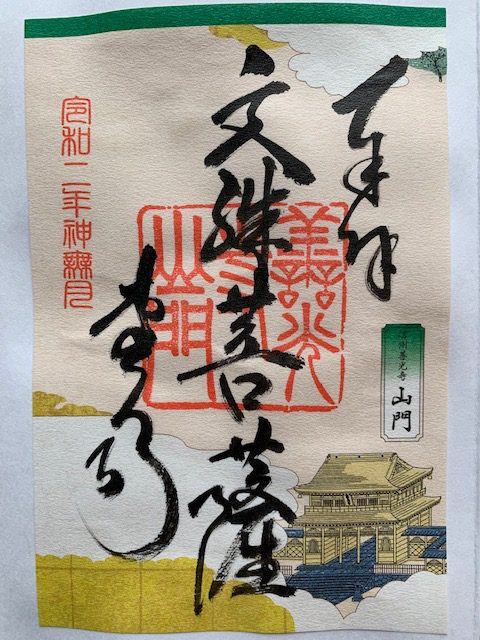 奉拝
信州善光寺
山門
文殊菩薩
善光
寺
山門
令和二年神無月